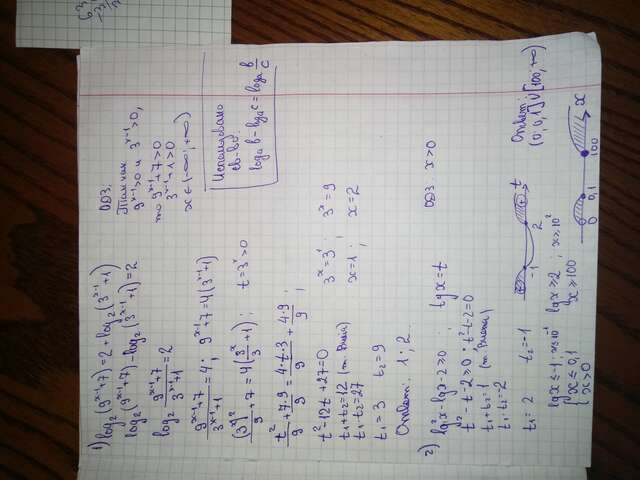 1) log₂(9ˣ⁻¹+7) = 2 + log₂(3ˣ⁻¹+1)
log₂(9ˣ⁻¹+7) - log₂(3ˣ⁻¹+1) = 2
log₂ (9ˣ⁻¹+7)/(3ˣ⁻¹+1) = 2
(9ˣ⁻¹+7)/(3ˣ⁻¹+1) = 4; 9ˣ⁻¹+7 = 4(3ˣ⁻¹+1)
(3ˣ)²/9 + 7 = 4(3ˣ/3 + 1); t = 3ˣ > 0
t²/9 + 7·9/9 = 4·t·3/9 + 4·9/9;
t² - 12t + 27 = 0
t₁+t₂ = 12 (т. Виета)
t₁·t₂ = 27
t₁ = 3 t₂ = 9
3ˣ = 3¹; 3ˣ = 9
x = 1; x = 2
Ответ: 1; 2.
ОДЗ.
Так как
9ˣ⁻¹>0 и 3ˣ⁻¹>0,
то 9ˣ⁻¹+7>0
3ˣ⁻¹+1>0
x ∈ (-∞; +∞)
Использовано
св-во:
logₐb - logₐc = logₐ b/c
2) lg²x - lgx - 2 ≥ 0 lgx = t ОДЗ: x>0
t² - t - 2 ≥ 0; t² - t - 2 = 0
t₁+t₂ = 1 (т. Виета)
t₁·t₂ = -2
t₁ = 2 t₂ = -1
+ -1 2 + t
lgx ≤ -1; x ≤ 10⁻¹ lgx ≥ 2; x ≥ 10²
{ x ≤ 0,1 x ≥ 100
x > 0
0 0,1 100 x
Ответ:
(0; 0,1] ∪ [100; +∞)